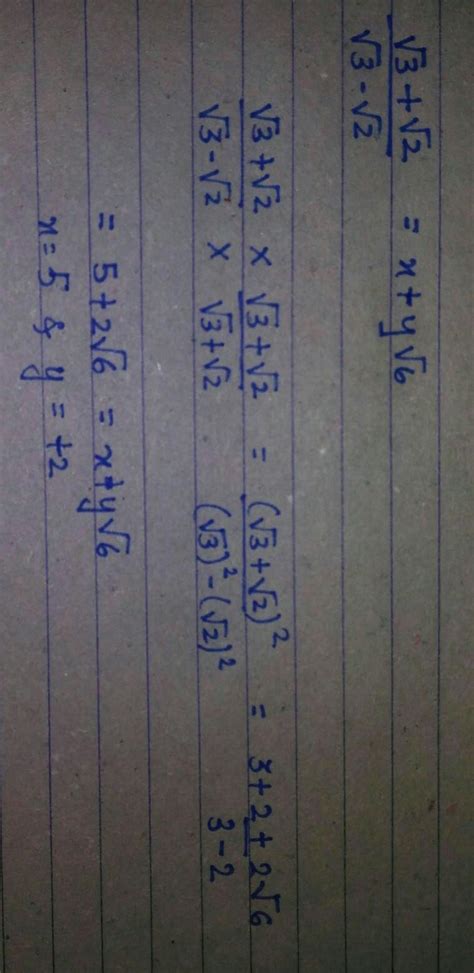 √3+√2 / √3-√2 = x+y√6
√3+√2 / √3-√2 × × √3+√2 / √3+√2 = (√3+√2)² / (√3)²-(√2)² = 3+2+2√6 / 3-2
= 5+2√6 = x+y√6
x=5 & y = +2